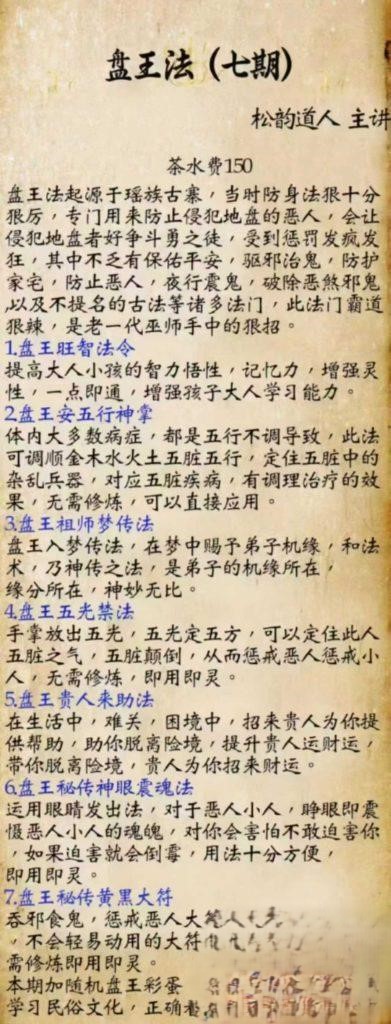 盘王法（七期）
松韵道人 主讲
茶水费150
盘王法起源于瑶族古寨，当时防身法狠十分
狠厉，专门用来防止侵犯地盘的恶人，会让
侵犯地盘者好争斗勇之徒，受到惩罚发疯发
狂，其中不乏有保佑平安，驱邪治鬼，防护
家宅，防止恶人，夜行震鬼，破除恶煞邪鬼
,以及不提名的古法等诸多法门，此法门霸道
狠辣，是老一代巫师手中的狠招。
1.盘王旺智法令
提高大人小孩的智力悟性，记忆力，增强灵
性，一点即通，增强孩子大人学习能力。
2.盘王安五行神掌
体内大多数病症，都是五行不调导致，此法
可调顺金木水火土五脏五行，定住五脏中的
杂乱兵器，对应五脏疾病，有调理治疗的效
果，无需修炼，可以直接应用。
3.盘王祖师梦传法
盘王入梦传法，在梦中赐予弟子机缘，和法
术，乃神传之法，是弟子的机缘所在，
缘分所在，神妙无比。
4.盘王五光禁法
手掌放出五光，五光定五方，可以定住此人
五脏之气，五脏颠倒，从而惩戒恶人惩戒小
人，无需修炼，即用即灵。
5.盘王贵人来助法
在生活中，难关，困境中，招来贵人为你提
供帮助，助你脱离险境，提升贵人运财运，
带你脱离险境，贵人为你招来财运。
6.盘王秘传神眼震魂法
运用眼睛发出法，对于恶人小人，睁眼即震
慑恶人小人的魂魄，对你会害怕不敢迫害你
，如果迫害就会倒霉，用法十分方便，
即用即灵。
7.盘王秘传黄黑大符
吞邪食鬼，惩戒恶人大
，不会轻易动用的大符
需修炼即用即灵。
本期加随机盘王彩蛋
学习民俗文化，正确看